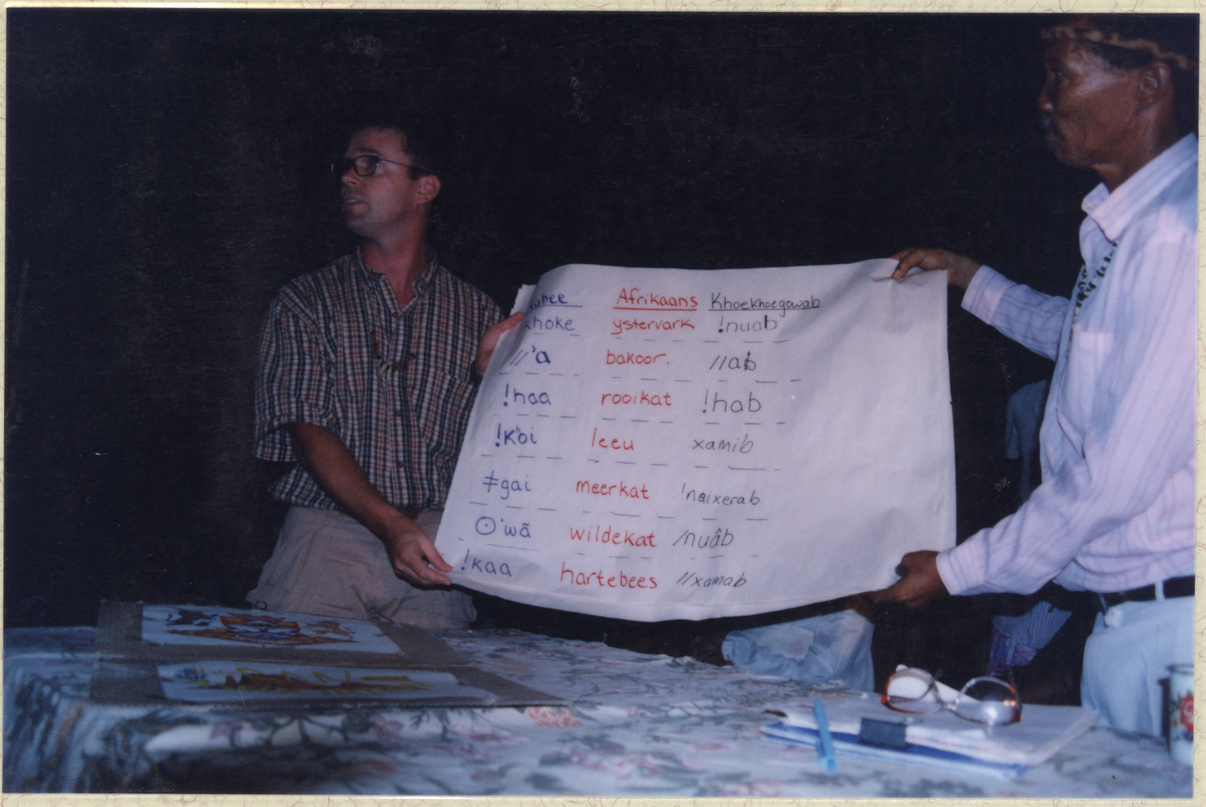 Afrikaans Khoekhoegowab
ystervark !nuab
//'a bakoor. //ab
!haa rooikat !hab
!kʰoi leeu xamib
ǂgai meerkat !naixerab
ʘ'wã wildekat /nuâb
!kaa hartebees //xamab